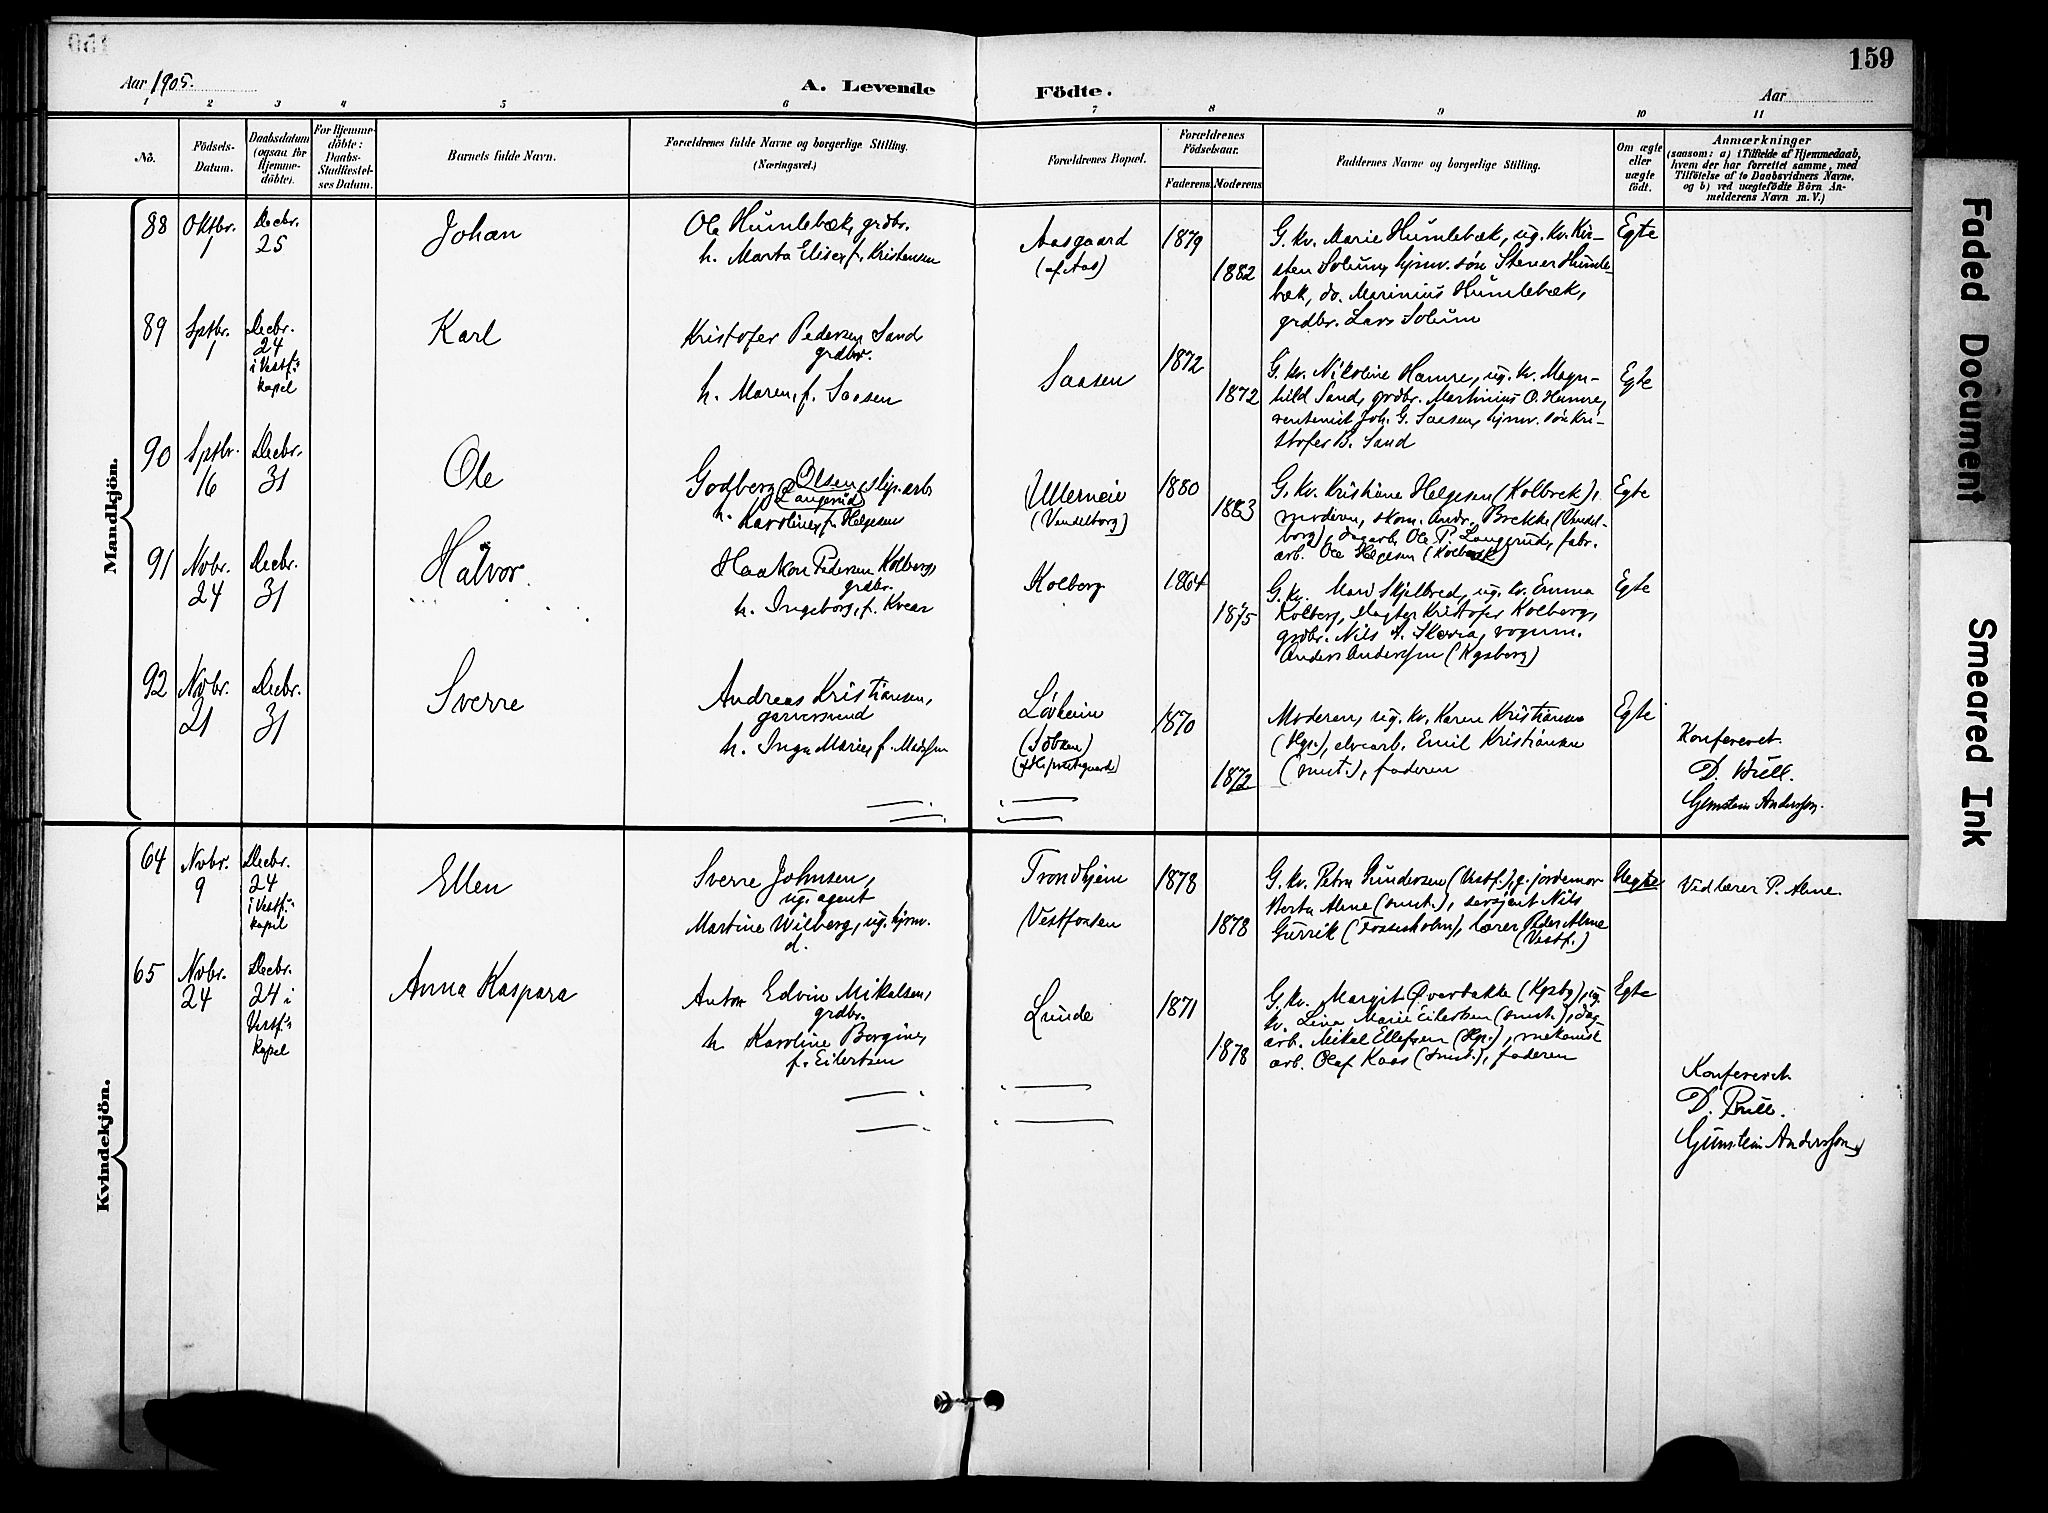 159
Aar 1905.
A. Levende Födte.
Aar
1 2 3 4 5 6 7 8 9 10 11
No.
Födsels-
Datum.
Daabsdatum
(ogsaa for
Hjemme-
döbte).
For Hjemme-
döbte:
Daabs-
Stadfæstel-
ses Datum.
Barnets fulde Navn.
Forældrenes fulde Navne og borgerlige Stilling.
(Næringsvei.)
Forældrenes Bopæl.
Forældrenes
Födselsaar.
Faderens Moderens
Faddernes Navne og borgerlige Stilling.
Om ægte
eller
uægte
født.
Anmærkninger
(saasom: a) i Tilfælde af Hjemmedaab,
hvem der har forrettet samme, med
Tilföielse af to Daabsvidners Navne,
og b) ved uægtefödte Börn An-
melderens Navn m. V.)
Mandkjön.
88
Oktbr.
1
Decbr.
25
Johan
Ole Humlebæk, grdbr.
h. Marta Elise, f. Kristensen
Aasgaard
(af Aas)
1879
1882
G. kv. Marie Humlebæk, ug. kv. Kir-
sten Solum, hjmv. søn Stener Humle-
bæk, do. Marinius Humlebæk,
grdbr. Lars Solum
Egte
89
Sptbr.
1
Decbr.
24
i Vestf.'s
kapel
Karl
Kristofer Pedersen Sand
grdbr.
h. Maren, f. Saasen
Saasen
1872
1872
G. kv. Nikoline Hamre, ug. kv. Magn-
hild Sand, grdbr. Martinius O. Hamre,
rentenist Joh. G. Saasen, hjmv. søn Kri-
stofer B. Sand
Egte
90
Sptbr.
16
Decbr.
31
Ole
Godberg Olsen, slip.arb.
Langerud
h. Karoline, f. Helgesen
Ullerneie
(Vendelborg)
1880
1883
G. kv. Kristiane Helgesen (Kolbrek),
moderen, skom. Andr. Brekke (Vendel-
borg), dagarb. Ole P. Langerud, fabr.
arb. Ole Helgesen (Kolbrek)
Egte
91
Novbr.
24
Decbr.
31
Halvor.
Haakon Pedersen Kolberg,
grdbr.
h. Ingeborg, f. Kvear
Kolberg
1864
1875
G. kv. Mari Skjelbred, ug. kv. Emma
Kolberg, slagter Kristofer Kolberg,
grdbr. Nils A. Skarra, vognm.
Anders Anderssen (Kgsberg)
Egte
92
Novbr.
21
Decbr.
31
Sverre
Andreas Kristiansen,
garversvend
h. Inga Marie, f. Madsen
Løvheim
1870
1872
Moderen, ug. kv. Karen Kristiansen
(Hgs.), elvearb. Emil Kristiansen
(smst.), faderen
Egte
Konfereret.
D. Bull.
Gunstein Anderssen.
Kvindekjön.
64
Novbr.
9
Decbr.
24
i Vestf.'s
kapel
Ellen
Sverre Johnsen,
ug. agent
Martine Wilberg, ug. hjmv.
d.
Trondhjem
Vestfossen
1878
1878
G. kv. Petra Gundersen (Vestf.), g. jordemor
Berta Alme (smst.), sersjent Nils
Gurrik (Fossesholm), lærer Peder Alme
(Vestf.)
Uegte
Ved lærer P. Alme.
65
Novbr.
24
Decbr.
24 i
Vestf.'s
kapel
Anna Kaspara
Anton Edvin Mikalsen,
grdbr.
h. Karoline Borgine,
f. Eilertsen
Lunde
1871
1878
G. kv. Margit Øverbakke (Kgsbg), ug.
kv. Lina Marie Eilertsen (smst.), dag-
arb. Mikal Ellefsen (Hgs.), mekanisk
arb. Olaf Kaas (smst.), faderen
Egte
Konfereret.
D. Bull.
Gunstein Anderssen
Faded Document
Smeared Ink